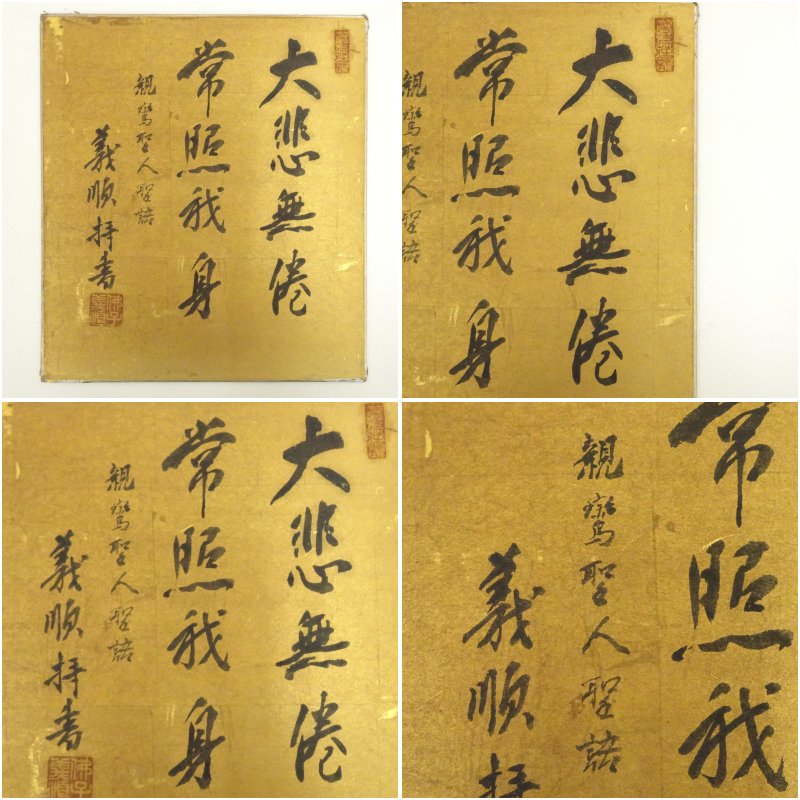 大悲無倦
常照我身
親鸞聖人聖語
義順拝書
佛子
義順
大悲無倦
常照我身
親鸞聖人聖語
大悲無倦
常照我身
親鸞聖人聖語
義順拝書
佛子
義順
常照我
親鸞聖人聖語
義順拝